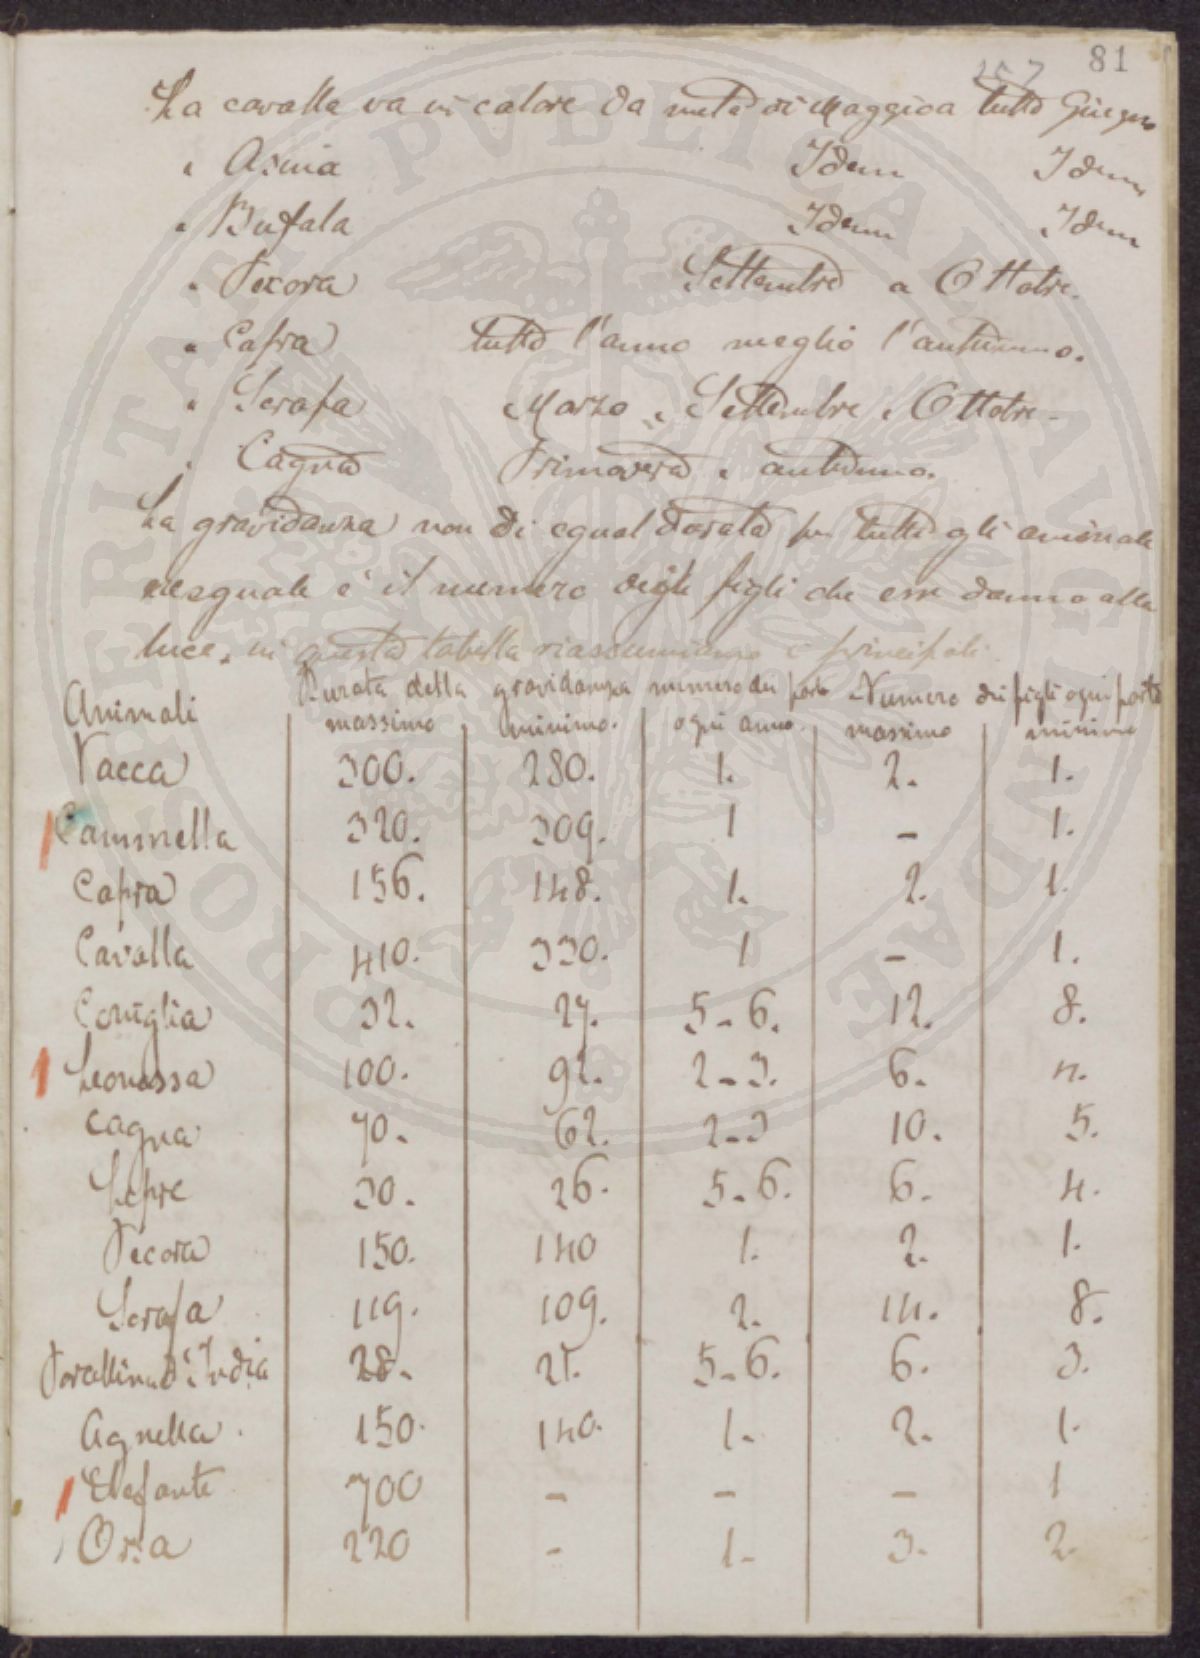 81
157
La cavalla va in calore da metà di Maggio a tutto Giugno
" Asina Idem Idem
" Bufala Idem Idem
" Pecora Settembre a Ottobre.
" Capra tutto l'anno meglio l'autunno.
" Scrofa Marzo e Settembre e Ottobre.
" Cagna Primavera e autunno.
La gravidanza non di egual dorata per tutti gli animali
inesguale è il numero degli figli che essi danno alla
luce, in questa tabella riassumiamo i principali.
Animali Durata della gravidanza numero dei parti Numero dei figli ogni parto
massimo minimo. ogni anno. massimo minimo
Vacca 300. 280. 1. 2. 1.
Cammella 320. 309. 1 - 1.
Capra 156. 148. 1. 2. 1.
Cavalla 410. 330. 1 - 1.
Coniglia 32. 27. 5-6. 12. 8.
Leonessa 100. 92. 2-3. 6. 4.
Cagna 70. 62. 2-3 10. 5.
Lepre 30. 26. 5-6. 6. 4.
Pecora 150. 140 1. 2. 1.
Scrofa 119. 109. 2. 14. 8.
Porcellina d'India 28. 21. 5-6. 6. 3.
Agnella. 150. 140. 1. 2. 1.
Elefante 700 - - - 1
Orsa 220 - 1. 3. 2.
PROSPERITATI PVBLICAE AVGENDAE